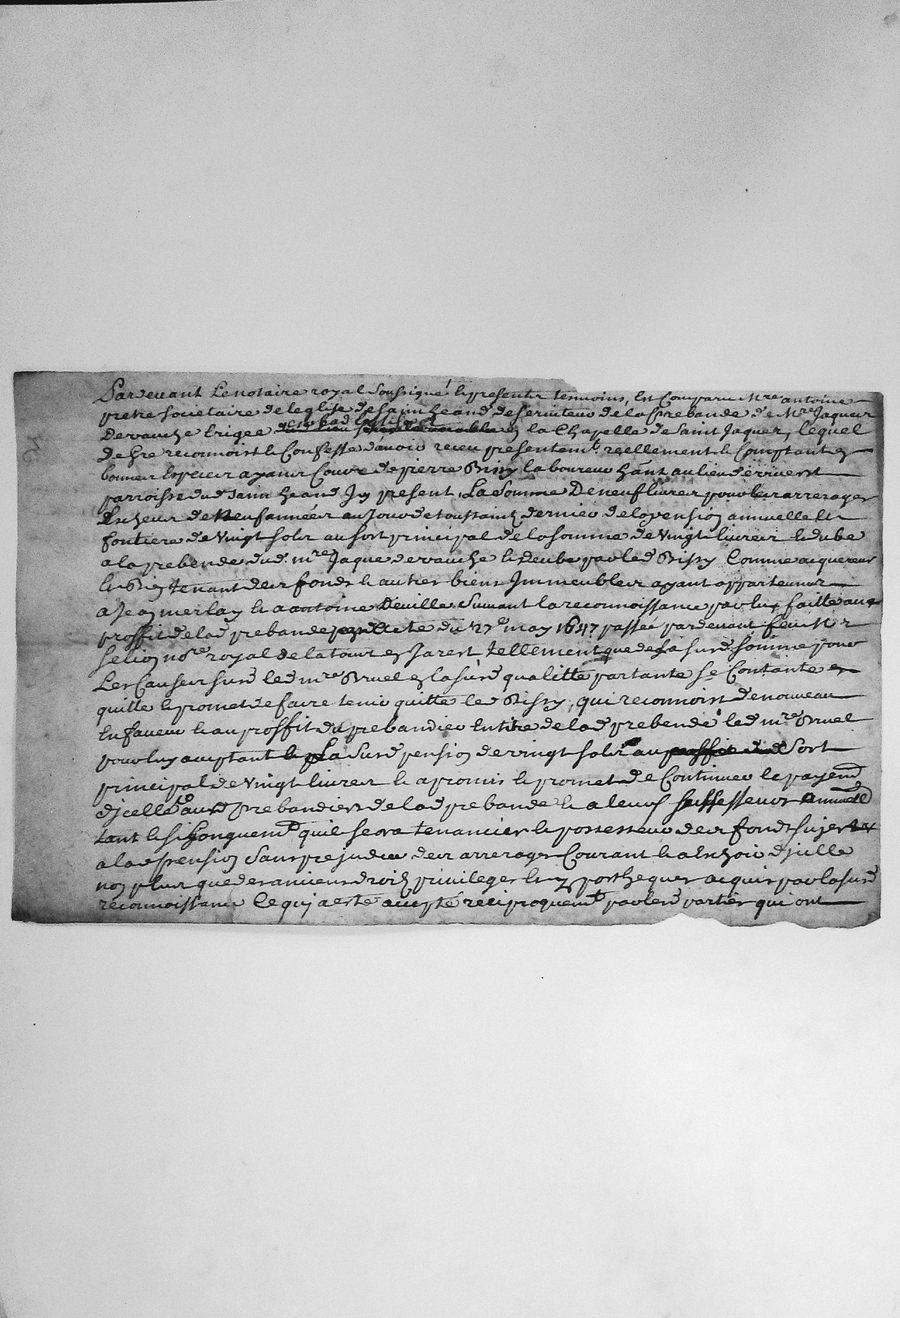 Pardevant Le notaire royal Soussigné & presente temoins, En Comparu Mre antoine
pretre societaire de leglise de saint heand desserviteur de la prebande de Mre Jaques
Devauche Erigée en la Chapelle de Saint Jaques, lequel
de gre reconnoist & Confesse davoir receu presentemt reellement & Comptant en
bonnes Especes ayant Cours de pierre Brissy laboureur hant au lieu
parroisse dud Saint heand Icy present, La Somme De neuf livres pour les arrerages
Escheus de Neuf années au Jour de toussaintz dernier de la pension annuelle &
fontiere de vingt solz au sort principal de la somme de vingt livres & dube
a la prebende dud mre Jaque devauche & deube par led Brissy Comme acquereur
& tenant des fonds & autres biens Immeubles ayant appartenus
a Jean merlay & a antoine Deville Suivant la reconnoissance par eux faitte au
proffit de lad prebande acte du 27e may 1647 passée pardevant feu Mr
nore royal de la tour en Jarest tellement que de la susd somme pour
Les Causes susd led mre Bruel en la susd qualitté partante se Contante en
quitte & promet de faire tenir quitte led Brissy, qui reconnoist de nouveau
En faveur & au proffit du prebandier Entier de lad prebende led mre Bruel
pour luy acceptant La susd pension de vingt solz au Sort
principal de vingt livres & a promis & promet de Continuer le payemt
dicelle aud prebandiers de lad prebande & a leurs successeurs annuelt
tant & si Longuemt quil sera tenancier & possesseur des fonds sujets
a lad pension Sans prejudice des arrerages Courant & a Eschoir dicelle
non plus que des anciens droitz privileges & ypotheques acquis par la susd
reconnoissance Ce qui a esté accepté reciproquemt par lesd parties qui ont